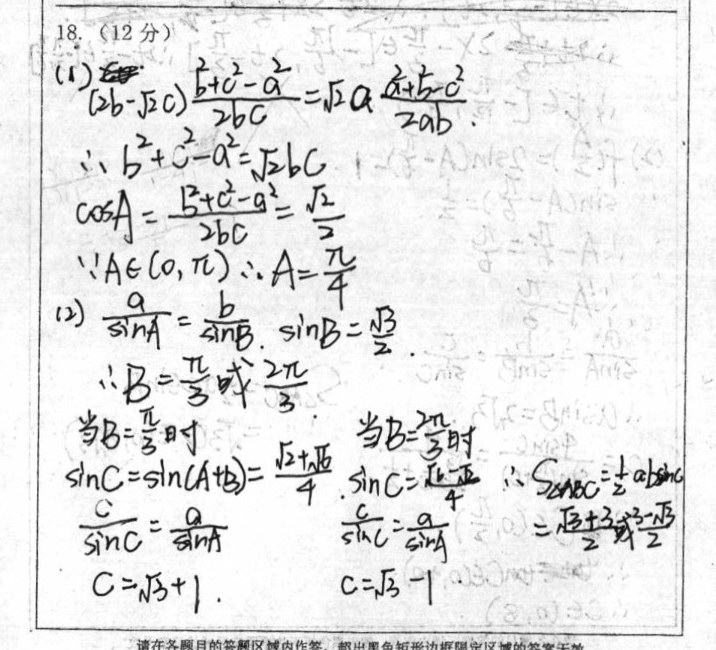 18. (12 分)
(1)
(2b-√2c) (b²+c²-a²)/(2bc) = √2a (a²+b²-c²)/(2ab).
∴ b²+c²-a²=√2bc
cosA = (b²+c²-a²)/(2bc) = √2/2
∵A∈(0,π) ∴A=π/4
(2) a/sinA = b/sinB. sinB = √3/2.
∴B=π/3 或 2π/3.
当B=π/3时
sinC=sin(A+B)=(√2+√6)/4.
c/sinC = a/sinA
C=√3+1.
当B=2π/3时
sinC=(√6-√2)/4
c/sinC = a/sinA
C=√3-1
∴S△ABC=½absinc
=(√3+3)/2 或 (3-√3)/2
请在各题目的答题区域内作答，超出黑色矩形边框限定区域的答案无效